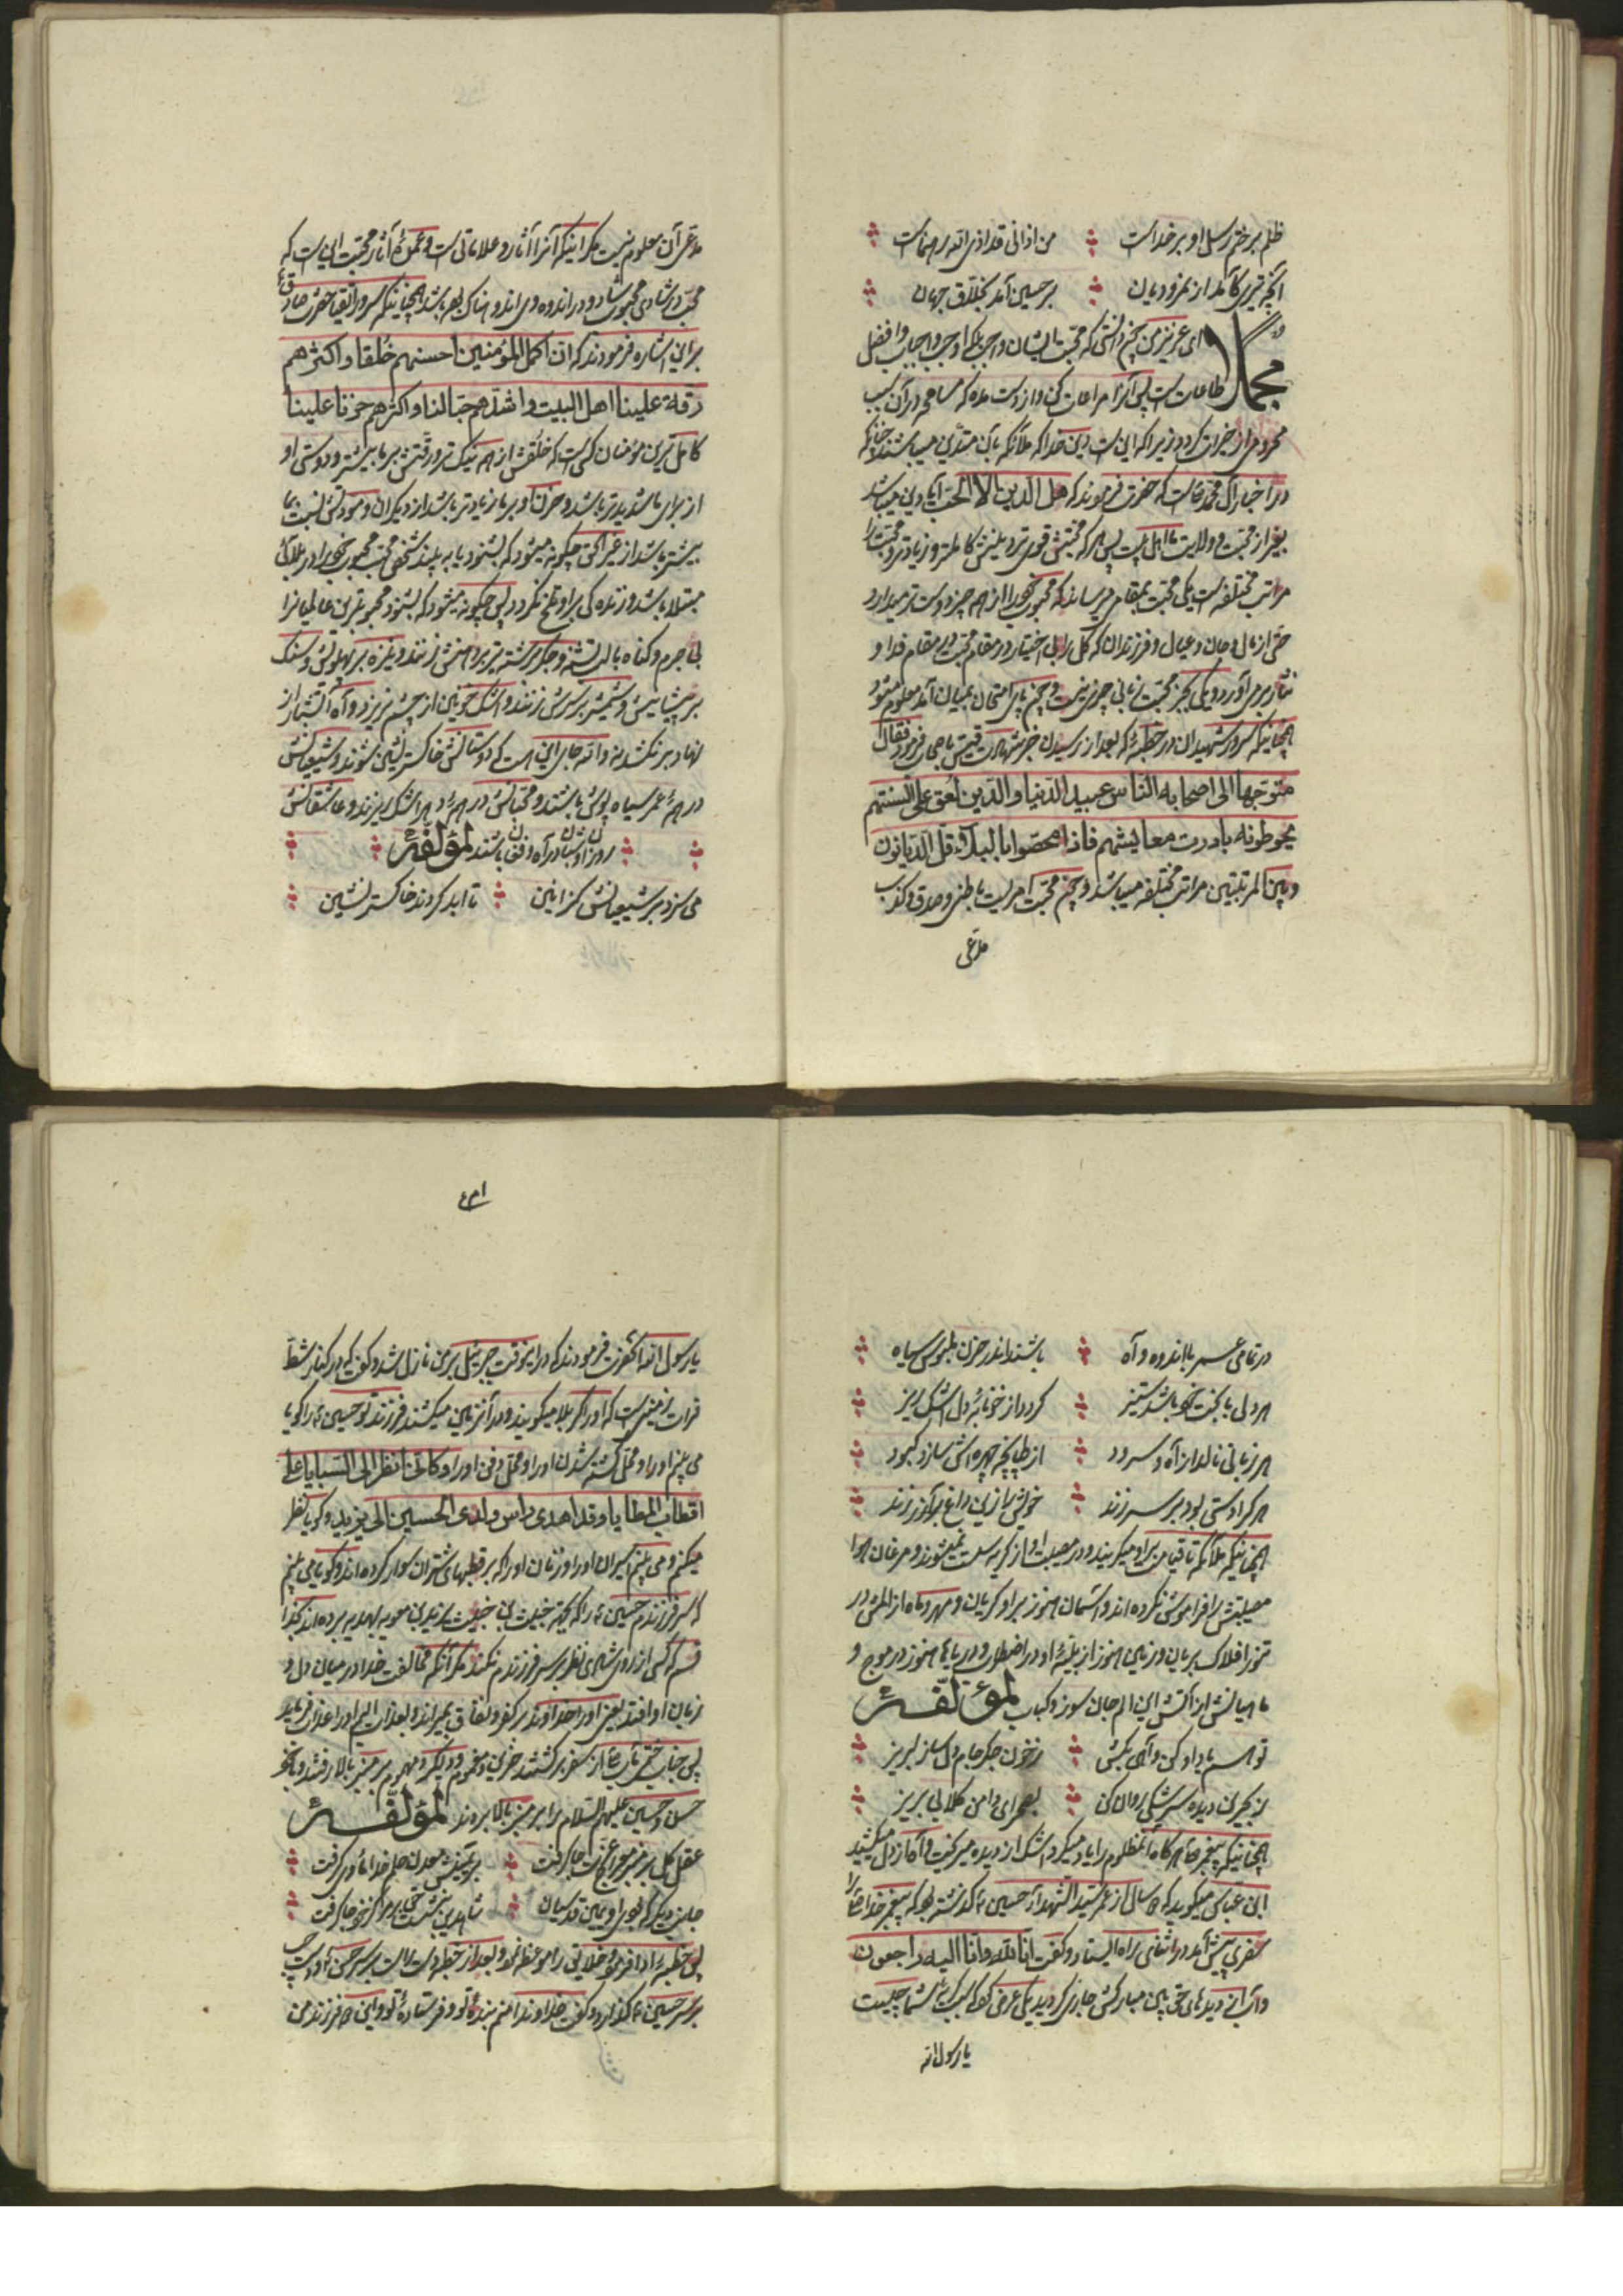 ظلم بر ختم رسل او بر خداست من اذانی قد اذی الله رهنماست
آنچه تیری کآمد از نمرودیان بر حسین آمد بخلاق جهان
مجملا ای عزیز من چون دانستی که محبت ایشان واجب بلکه اوجب واجبات و افضل
طاعات است پس آنرا مراعات کن و از دست مده که مساهمه در آن سبب
محرومی از خیرات گردد زیرا که این است دین خدا که ملائکه بآن متدین میباشند چنانکه
در اخبار آل محمد است که حضرت فرمودند که هل الدین الا الحب آیا دین میباشد
بغیر از محبت و ولایت ما اهل بیت پس هر که محبتش قوی تر دینش کاملتر و زیادتر و محبت را
مراتب مختلفه است یکی محبت بمقامی میرساند که محبوب خود را از همه چیز دوست تر میدارد
حتی از مال و جان و عیال و فرزندان که کل را بی اختیار در مقام محبت وی بمقام فدا و
نثار در می آورد و یکی بجز محبت زبانی چیزی نیست و چون پای امتحان بمیان آمد معلوم میشود
همچنانکه سرور شهیدان در خطبه که بعد از رسیدن خبر شهادت قیس باصحاب فرمود فقال
متوجها الی اصحابه الناس عبید الدنیا والدین لعق علی السنتهم
یحوطونه ما درت معایشهم فاذا محصوا بالبلاء قل الدیانون
و بین المرتبتین مراتب مختلفه میباشد و چون محبت امریست باطنی و صدق و کذب
مدعی
مدعی آن معلوم نیست مگر اینکه آنرا آثار و علاماتی است و عمده آثار محبت این است که
محب در شادی محبوب شاد و در اندوه وی اندوهناک بوده باشد همچنانکه سرور اتقیا حضرت صادق
براین اشاره فرمودند که ان اکمل المؤمنین احسنهم خلقا و اکثرهم
رقة علینا اهل البیت و اشدهم حبا لنا و اکثرهم حزنا علینا
کامل ترین مؤمنان کسی است که خلقش از همه نیک تر و رقتش بر ما بیشتر و دوستی او
از برای ما شدیدتر باشد و حزن او بر ما زیادتر باشد از دیگران و مودتش نسبت بما
بیشتر باشد از غیر آکنی چگونه میشود که بشنود یا به بیند شخصی محب محبوب خود را در بلائی
مبتلا باشد و زندگی بر او تلخ نگردد پس چگونه میشود که بشنود محبوبترین عالمیانرا
بی جرم و گناه با لب تشنه و جگر برشته تیر بر دهنش زنند و نیزه بر پهلویش و سنگ
بر پیشانیش و شمشیر بر سرش زنند و اشک خونین از چشم نریزد و آه آتشبار از
نهاد بر نکشد نه والله جای این است که دوستانش خاکستر نشین شوند و شیعیانش
در همه عمر سیاه پوش باشند و محبانش در همه دهر اشک ریزند و عاشقانش
روزان و شبان در آه و فغان باشند لمؤلفه
می سزد بر شیعیانش کز انین تا ابد گردند خاکستر نشین
در تمامی عمر با اندوه و آه باشند اندر حزن ملبوس سیاه
هر دلی با بخت خود باشد ستیز گردد از خونابه دل اشک ریز
هر زبانی نالد از آه و سرود از طپانچه چهره اش سازد کبود
هر که را دستی بود بر سر زند خویش را زین داغ بر آذر زند
همچنانکه ملائکه تا قیامت بر او میگریند و در مصیبت او از گریه ساکت نمیشوند و مرغان هوا
مصیبتش را فراموش نکرده اند و آسمان هنوز بر او گریان و مهر و ماه از المش در
تنور افلاک بریان و زمین هنوز از بلیه او در اضطراب و دریاها هنوز در موج و
ماهیانش از آتش این الم جان سوز و کباب لمؤلفه
تو هم یاد او کن و آهی بکش ز خون جگر جام دل ساز لبریز
ز بحرین دیده سرشکی روان کن بصحرای دامن گلابی بریز
همچنانکه پیغمبر هرگاه آن مظلوم را یاد میکرد اشک از دیده میریخت و آه از دل میکشید
ابن عباس میگوید که ۵ سال از عمر سید الشهداء حسین گذشته بود که پیغمبر خدا را
سفری پیش آمد در اثنای راه ایستاد و گفت انا لله وانا الیه راجعون
و آب از دیدهای حق بین مبارکش جاری گردید یکی عرض کرد که سبب گریه شما چیست
یا رسول الله
۴۳۱
یا رسول الله آنحضرت فرمودند که در این وقت جبرئیل بر من نازل شد و گفت که در کنار شط
فرات زمینی است که او را کربلا میگویند و در آنزمین میکشند فرزند تو حسین را گویا
می بینم او را و محل کشته شدن او را و محل دفن او را و کانی انظر الی السبایا علی
اقطاب المطایا وقد اهدی راس ولدی الحسین الی یزید و گویا نظر
میکنم و می بینم اسیران او را و زنان او را که بر قطبهای شتران سوار کرده اند و گویا می بینم
که سر فرزندم حسین را که بجهة خبیث بن خبیث یزید بن معویه بهدیه برده اند بخدا
قسم که کسی از روی شادی نظر بر سر فرزندم نکند مگر آنکه مخالفت خدا در میان دل و
زبان او افتد یعنی او را خداوند بر کفر و نفاق بمیراند و بعذاب الیم او را عذاب فرماید
پس جناب ختمی مآب از سفر برگشتند حزین و مغموم و دیگر و مهموم بر منبر بالا رفتند و با خود
حسن و حسین علیهم السلام را بر منبر بالا بردند لمؤلفه
عقل کل بر منبر معراج عزت جا گرفت بر یمینش معدن حلم خدا مأوی گرفت
جانب دیگر که بودی او یمین قدسیان شاه دین بنشست حق بر مرکز خود جا گرفت
پس خطبه ادا فرمود و خلایق را موعظه نمود و بعد از خطبه دست راست بر سر حسن و دست چپ
بر سر حسین گذارد و گفت خداوندا منم بنده تو و فرستاده تو و این ۲ فرزند من